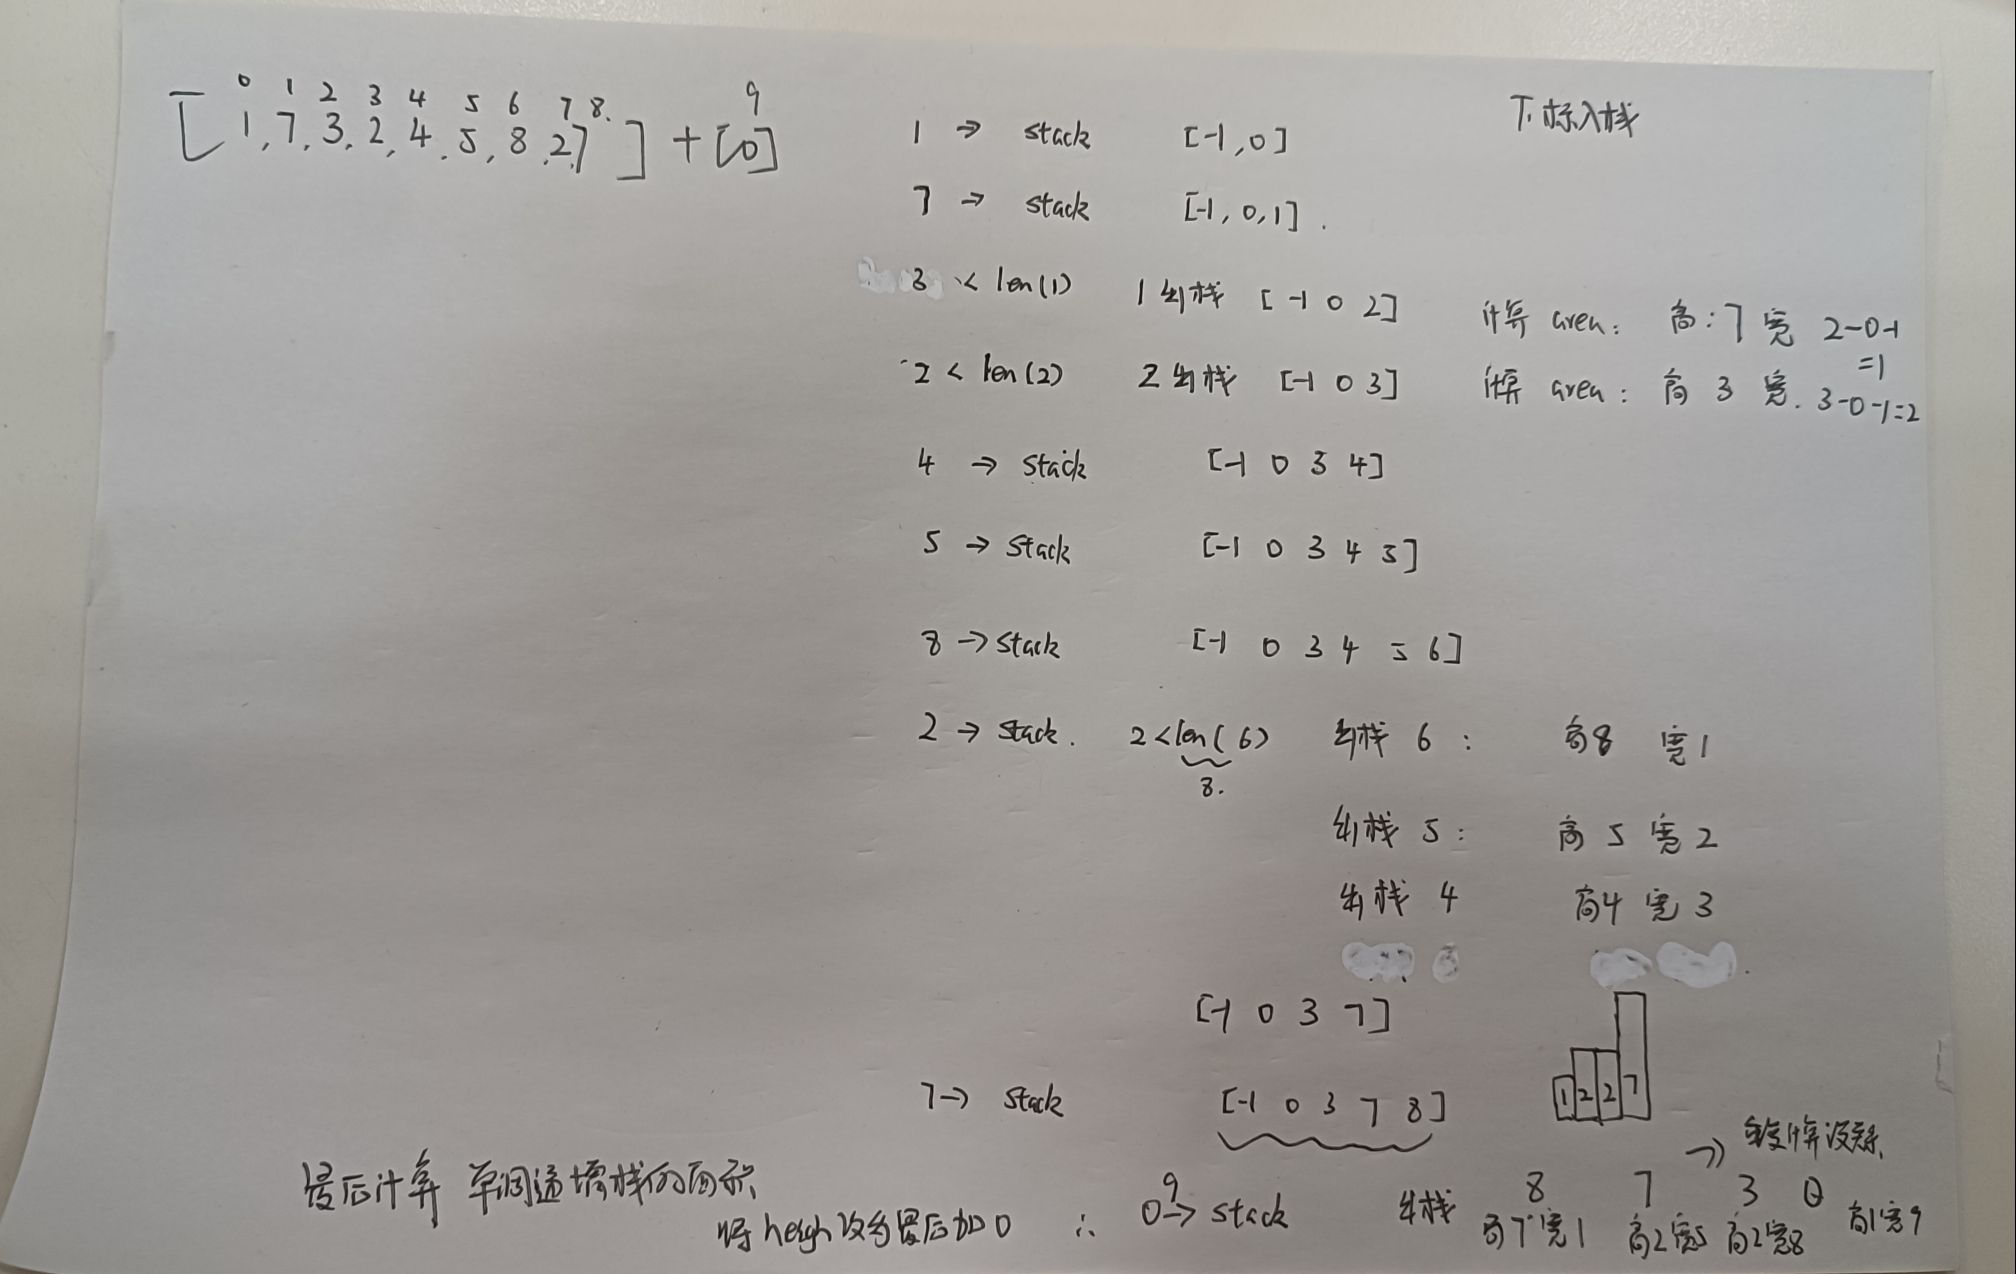 0 1 2 3 4 5 6 7 8. 9
[1,7,3,2,4,5,8,2,7] + [0]
下标入栈
1 → stack [-1,0]
7 → stack [-1,0,1].
3 < len(1) 1出栈 [-1 0 2] 计算 area: 高:7 宽 2-0-1
=1
2 < len(2) 2出栈 [-1 0 3] 计算 area: 高 3 宽. 3-0-1=2
4 → stack [-1 0 3 4]
5 → stack [-1 0 3 4 5]
8 → stack [-1 0 3 4 5 6]
2 → stack. 2<len(6) 出栈 6: 高8 宽1
8.
出栈 5: 高 5 宽 2
出栈 4 高4 宽 3
[-1 0 3 7]
1 2 2 7
7 → stack [-1 0 3 7 8]
→ 重复计算没关系
最后计算 单调递增栈的面积
将 heigh 数组最后加0 ∴ 0→ stack 出栈 8 7 3 0
9
高7宽1 高2宽5 高2宽8 高1宽9